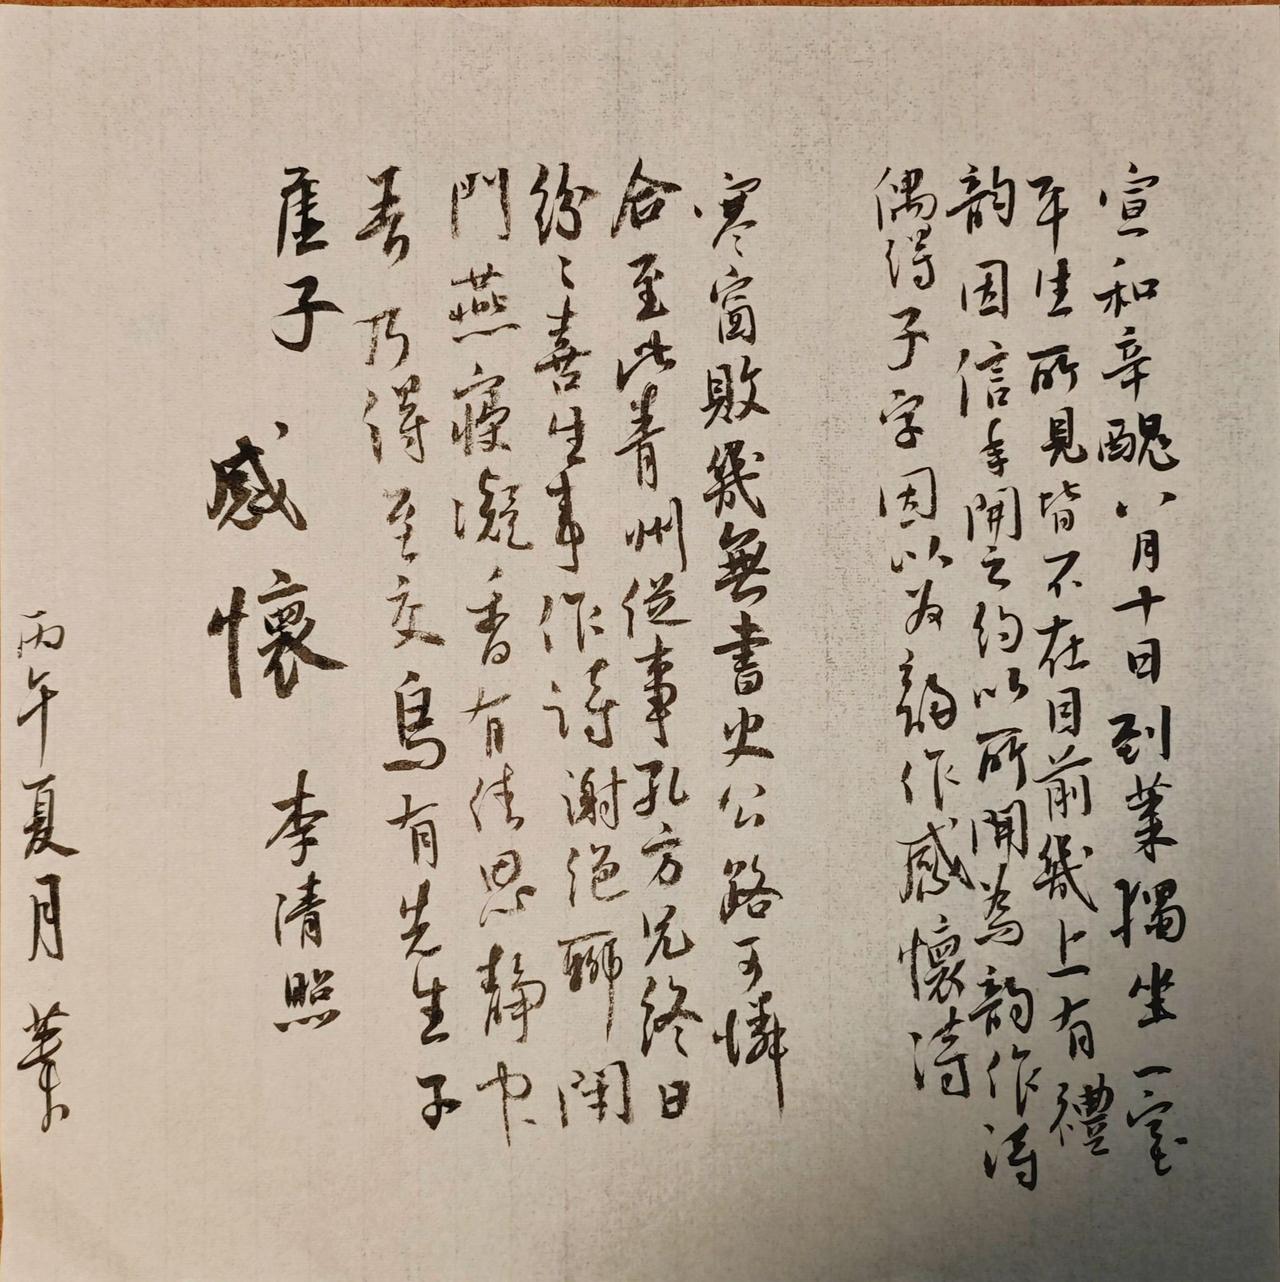 宣和辛醜八月十日到莱獨坐一室
平生所見皆不在目前幾上有禮
韵因信手開之約以所開為韵作詩
偶得子字因以为韵作感懷詩
寒窗敗幾無書史公路可憐
合至此青州從事孔方兄終日
紛々喜生事作詩謝絕聊閉
門燕寢凝香有佳思静中
吾乃得至交烏有先生子
虛子
感懷 李清照
丙午夏月